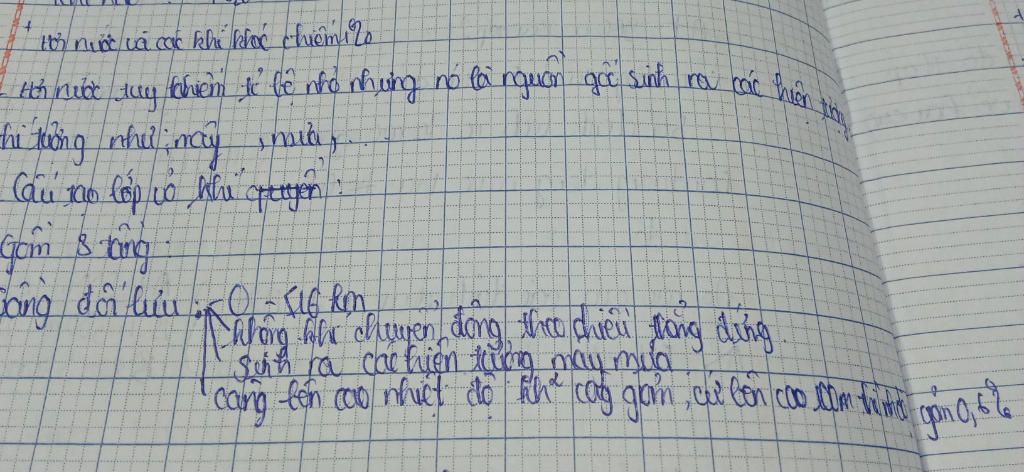 + Hơi nước và các khí khác chiếm 1%
- Hơi nước tuy chiếm tỉ lệ nhỏ nhưng nó là nguồn gốc sinh ra các hiện tượng
khí tượng như: mây, mưa, ...
Cấu tạo lớp vỏ khí quyển:
gồm 3 tầng:
tầng đối lưu: 0 - 16 km
không khí chuyển động theo chiều thẳng đứng.
sinh ra các hiện tượng mây mưa
càng lên cao nhiệt độ kh² càng giảm, cứ lên cao 100m thì nó giảm 0,6%